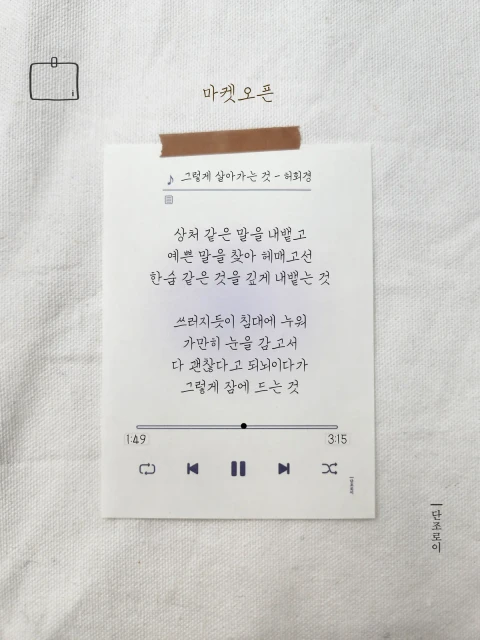 마켓오픈
♪ 그렇게 살아가는 것 - 허회경
상처 같은 말을 내뱉고
예쁜 말을 찾아 헤매고선
한숨 같은 것을 깊게 내뱉는 것
쓰러지듯이 침대에 누워
가만히 눈을 감고서
다 괜찮다고 되뇌이다가
그렇게 잠에 드는 것
1:49
3:15
단조로이